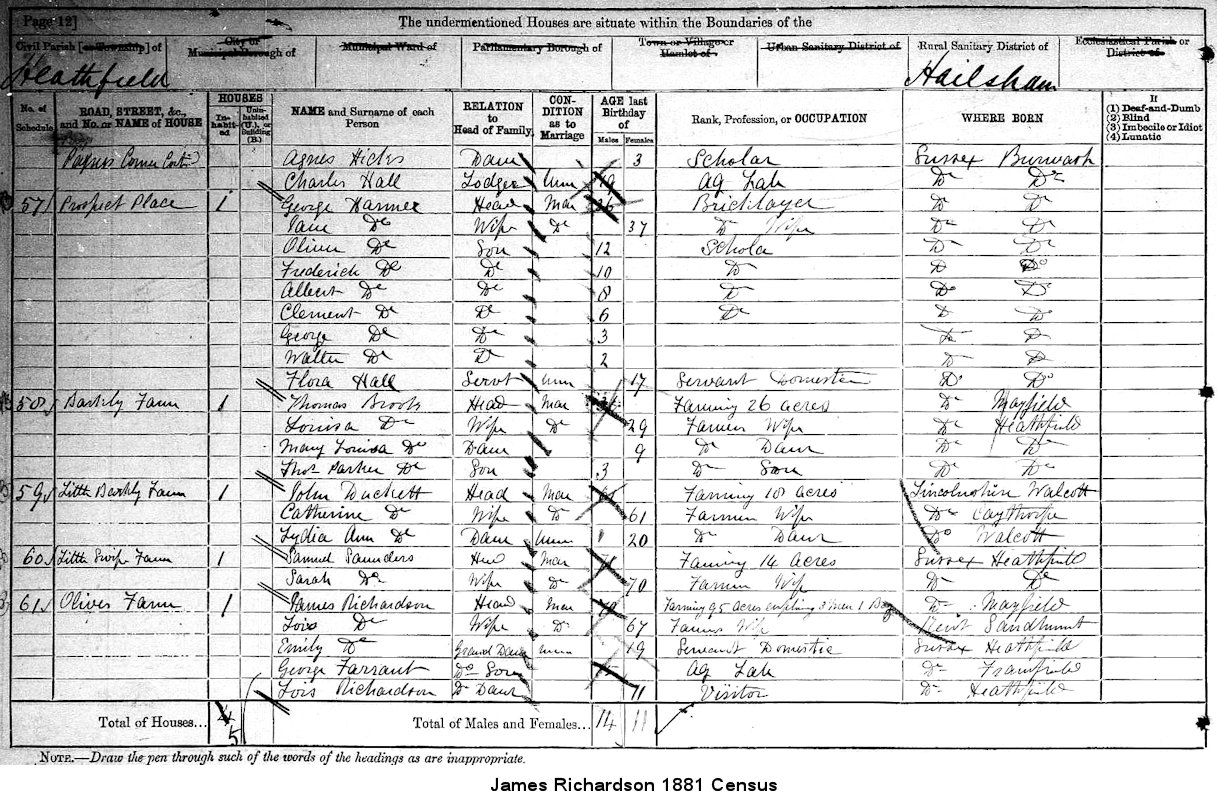 Page 12] The undermentioned Houses are situate within the Boundaries of the
Civil Parish [or Township] of City or Municipal Borough of Municipal Ward of Parliamentary Borough of Town or Village or Hamlet of Urban Sanitary District of Rural Sanitary District of Ecclesiastical Parish or District of
Heathfield Hailsham
No. of Schedule ROAD, STREET, &c., and No. or NAME of HOUSE HOUSES Inhabited Uninhabited (U.), or Building (B.) NAME and Surname of each Person RELATION to Head of Family CONDITION as to Marriage AGE last Birthday of Males Females Rank, Profession, or OCCUPATION WHERE BORN If (1) Deaf-and-Dumb (2) Blind (3) Imbecile or Idiot (4) Lunatic
Corner Agnes Hicks Daur 3 Scholar Sussex Burwash
Charles Hall Lodger Unm 19 Ag Lab Do Do
57 Prospect Place 1 George Harmer Head Mar 36 Bricklayer Do Do
Jane Do Wife Do 37 Do Wife Do Do
Oliver Do Son 12 Schola Do Do
Frederick Do Do 10 Do Do Do
Albert Do Do 8 Do Do Do
Clement Do Do 6 Do Do Do
George Do Do 3 Do Do
Walter Do Do 2 Do Do
Flora Hall Servt Unm 17 Servant Domestic Do Do
58 Barkly Farm 1 Thomas Brooks Head Mar Farming 26 acres Do Mayfield
Louisa Do Wife Do 29 Farmers Wife Do Heathfield
Mary Louisa Do Daur 9 Do Daur Do Do
Thos Parker Do Son 3 Do Son Do Do
59 Little Barkly Farm 1 John Duckett Head Mar Farming 10 acres Lincolnshire Walcott
Catherine Do Wife Do 61 Farmers Wife Do Caythorpe
Lydia Ann Do Daur Unm 20 Do Daur Do Walcott
60 Little Swife Farm 1 Samuel Saunders Hed Mar Farming 14 acres Sussex Heathfield
Sarah Do Wife Do 70 Farmers Wife Do Do
61 Olives Farm 1 James Richardson Head Mar Farming 95 acres employing 3 men 1 Boy Do Mayfield
Lois Do Wife Do 67 Farmers Wife Kent Sandhurst
Emily Do Grand Daur Unm 19 Servant Domestic Sussex Heathfield
George Farrant Do Son Ag Lab Do Framfield
Lois Richardson Do Daur 11 Visitor Do Heathfield
Total of Houses... 4 5 Total of Males and Females... 14 11
NOTE.—Draw the pen through such of the words of the headings as are inappropriate.
James Richardson 1881 Census